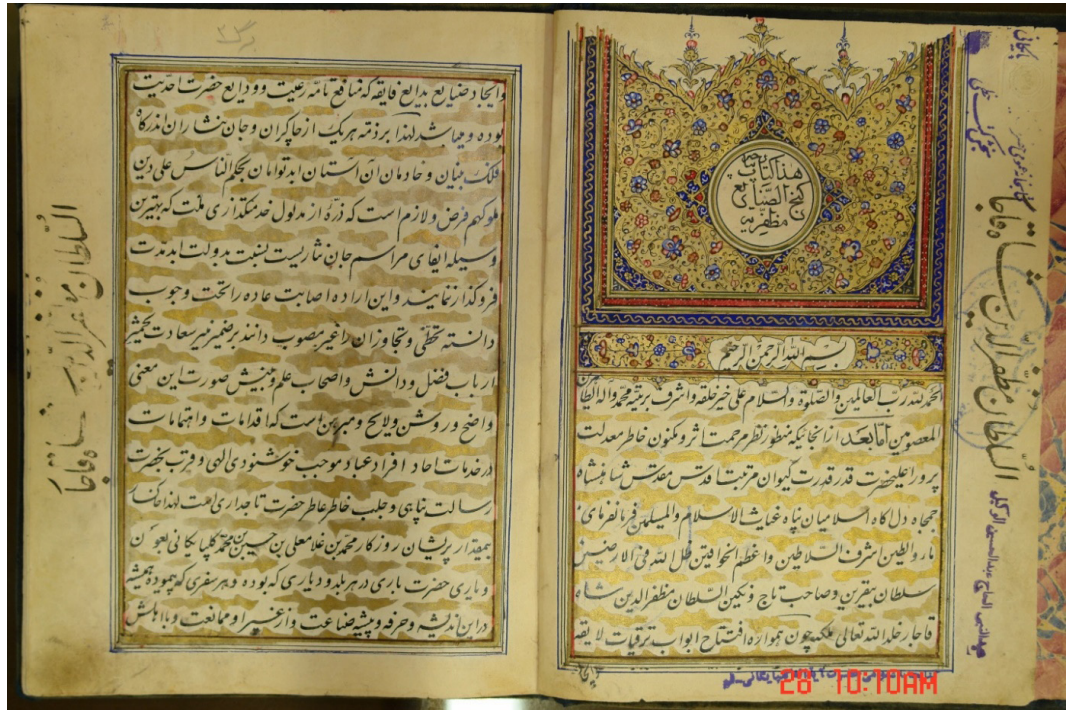 هذا كتاب
كنج الصنايع
مظفريه
بسم الله الرحمن الرحيم
الحمد لله رب العالمين والصلوة والسلام على خير خلقه واشرف بريته محمد واله الطاهرين
المعصومين اما بعد از انجائيكه منظور نظر مرحمت اثر و مكنون خاطر معدلت
پرور اعليحضرت قدر قدرت كيوان مرتبت اقدس مقدس شاهنشاه
جمجاه دل اكاه اسلاميان پناه غياث الاسلام والمسلمين فرمانفرماى
ماء والطين اشرف السلاطين واعظم الخواقين ظل الله فى الارضين
سلطان بيقرين وصاحب تاج و نكين السلطان مظفر الدين شاه
قاجار خلد الله تعالى ملكه چون همواره افتتاح ابواب ترقيات لايقه
وايجاد صنايع بدايع فايقه كه منافع تامه رعيت وودايع حضرت احديت
بوده و ميباشد لهذا بر ذمه هر يك از چاكران و جان نثاران اندركاه
فلك بنيان و خادمان آن آستان ابد توامان بحكم الناس على دين
ملوكهم فرض ولازم است كه ذرهٔ از مدلول خدمتكذارى ملت كه بهترين
وسيله ايفاى مراسم جان نثاريست نسبت بدولت ابد مدت
فروكذار ننمايند واين اراده اصابت عاده را تحت وجوب
دانسته تخطى و تجاوز ازان را غير مصوب دانند بر ضمير منير سعادت تخمير
ارباب فضل و دانش واصحاب علم و بينش صورت اين معنى
واضح و روشن ولايح و مبرهن است كه اقدامات واهتمامات
در خدمات احاد افراد عباد موجب خوشنودى الهى و قرب بحضرت
رسالت پناهى و جلب خاطر عاطر حضرت تاجدارى است لهذا خاكسار
بيمقدار پريشان روزكار محمد بن غلامعلى بن حسين بن محمد كلپايكانى بعون
و يارى حضرت بارى در هر بلد و ديارى كه بوده و هر سفرى كه پيموده هميشه
در اين انديشه و حرفه و پيشه صناعت و از غير او ممانعت و با اهلش
السلطان مظفر الدين شاه قاجار
السلطان مظفر الدين شاه قاجار
عبدالنبى الحاج عبدالحسين الوكيل
28 10:10AM